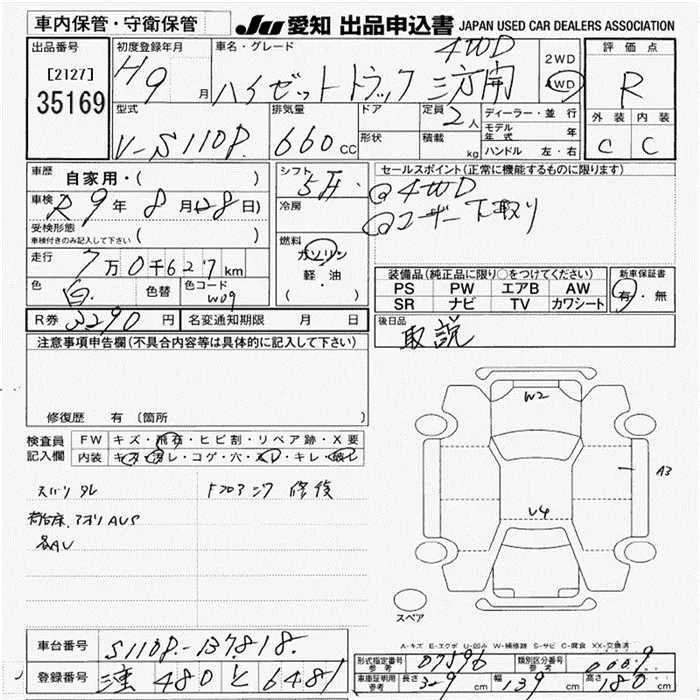 車内保管・守衛保管
JU 愛知 出品申込書 JAPAN USED CAR DEALERS ASSOCIATION
出品番号 初度登録年月 車名・グレード 4WD 2WD 評価点
[2127] H9 月 ハイゼットトラック 三方開 4WD R
35169
型式 排気量 ドア 定員 ディーラー・並行 外装 内装
V-S110P. 660cc 形状 2人 積載 kg モデル年式 年 C C
ハンドル 左・右
車歴 自家用・( ) シフト 5F・ セールスポイント(正常に機能するものに限ります)
車検 R9年8月28日) 冷房 4WD
受検形態 ( ) ユーザー下取り
車検付きのみ記入して下さい
走行 7万0千627km 燃料 ガソリン 装備品(純正品に限り○をつけてください) 新車保証書
軽・油 PS PW エアB AW 有・無
色 白 色替 色コード W09 ( ) SR ナビ TV カワシート
R券 5290円 名変通知期限 月 日 後日品 取説
注意事項申告欄(不具合内容等は具体的に記入して下さい)
修復歴 有 〔箇所
W2
検査員 FW キズ・飛石・ヒビ割・リペア跡・X要
記入欄 内装 キズ・汚レ・コゲ・穴・スレ・キレ・破レ
A3
U4
荷台床、アオリAU5
各AU
スペア
A-キズ E-エクボ U-凹み W-補修跡 S-サビ C-腐食 XX-交換済
車台番号 S110P-137818. 形式指定番号 参考 07596 類別区分番号 参考 0009
登録番号 480 と 6481 車庫証明用 参考 長さ 329cm 幅 139cm 高さ 180cm